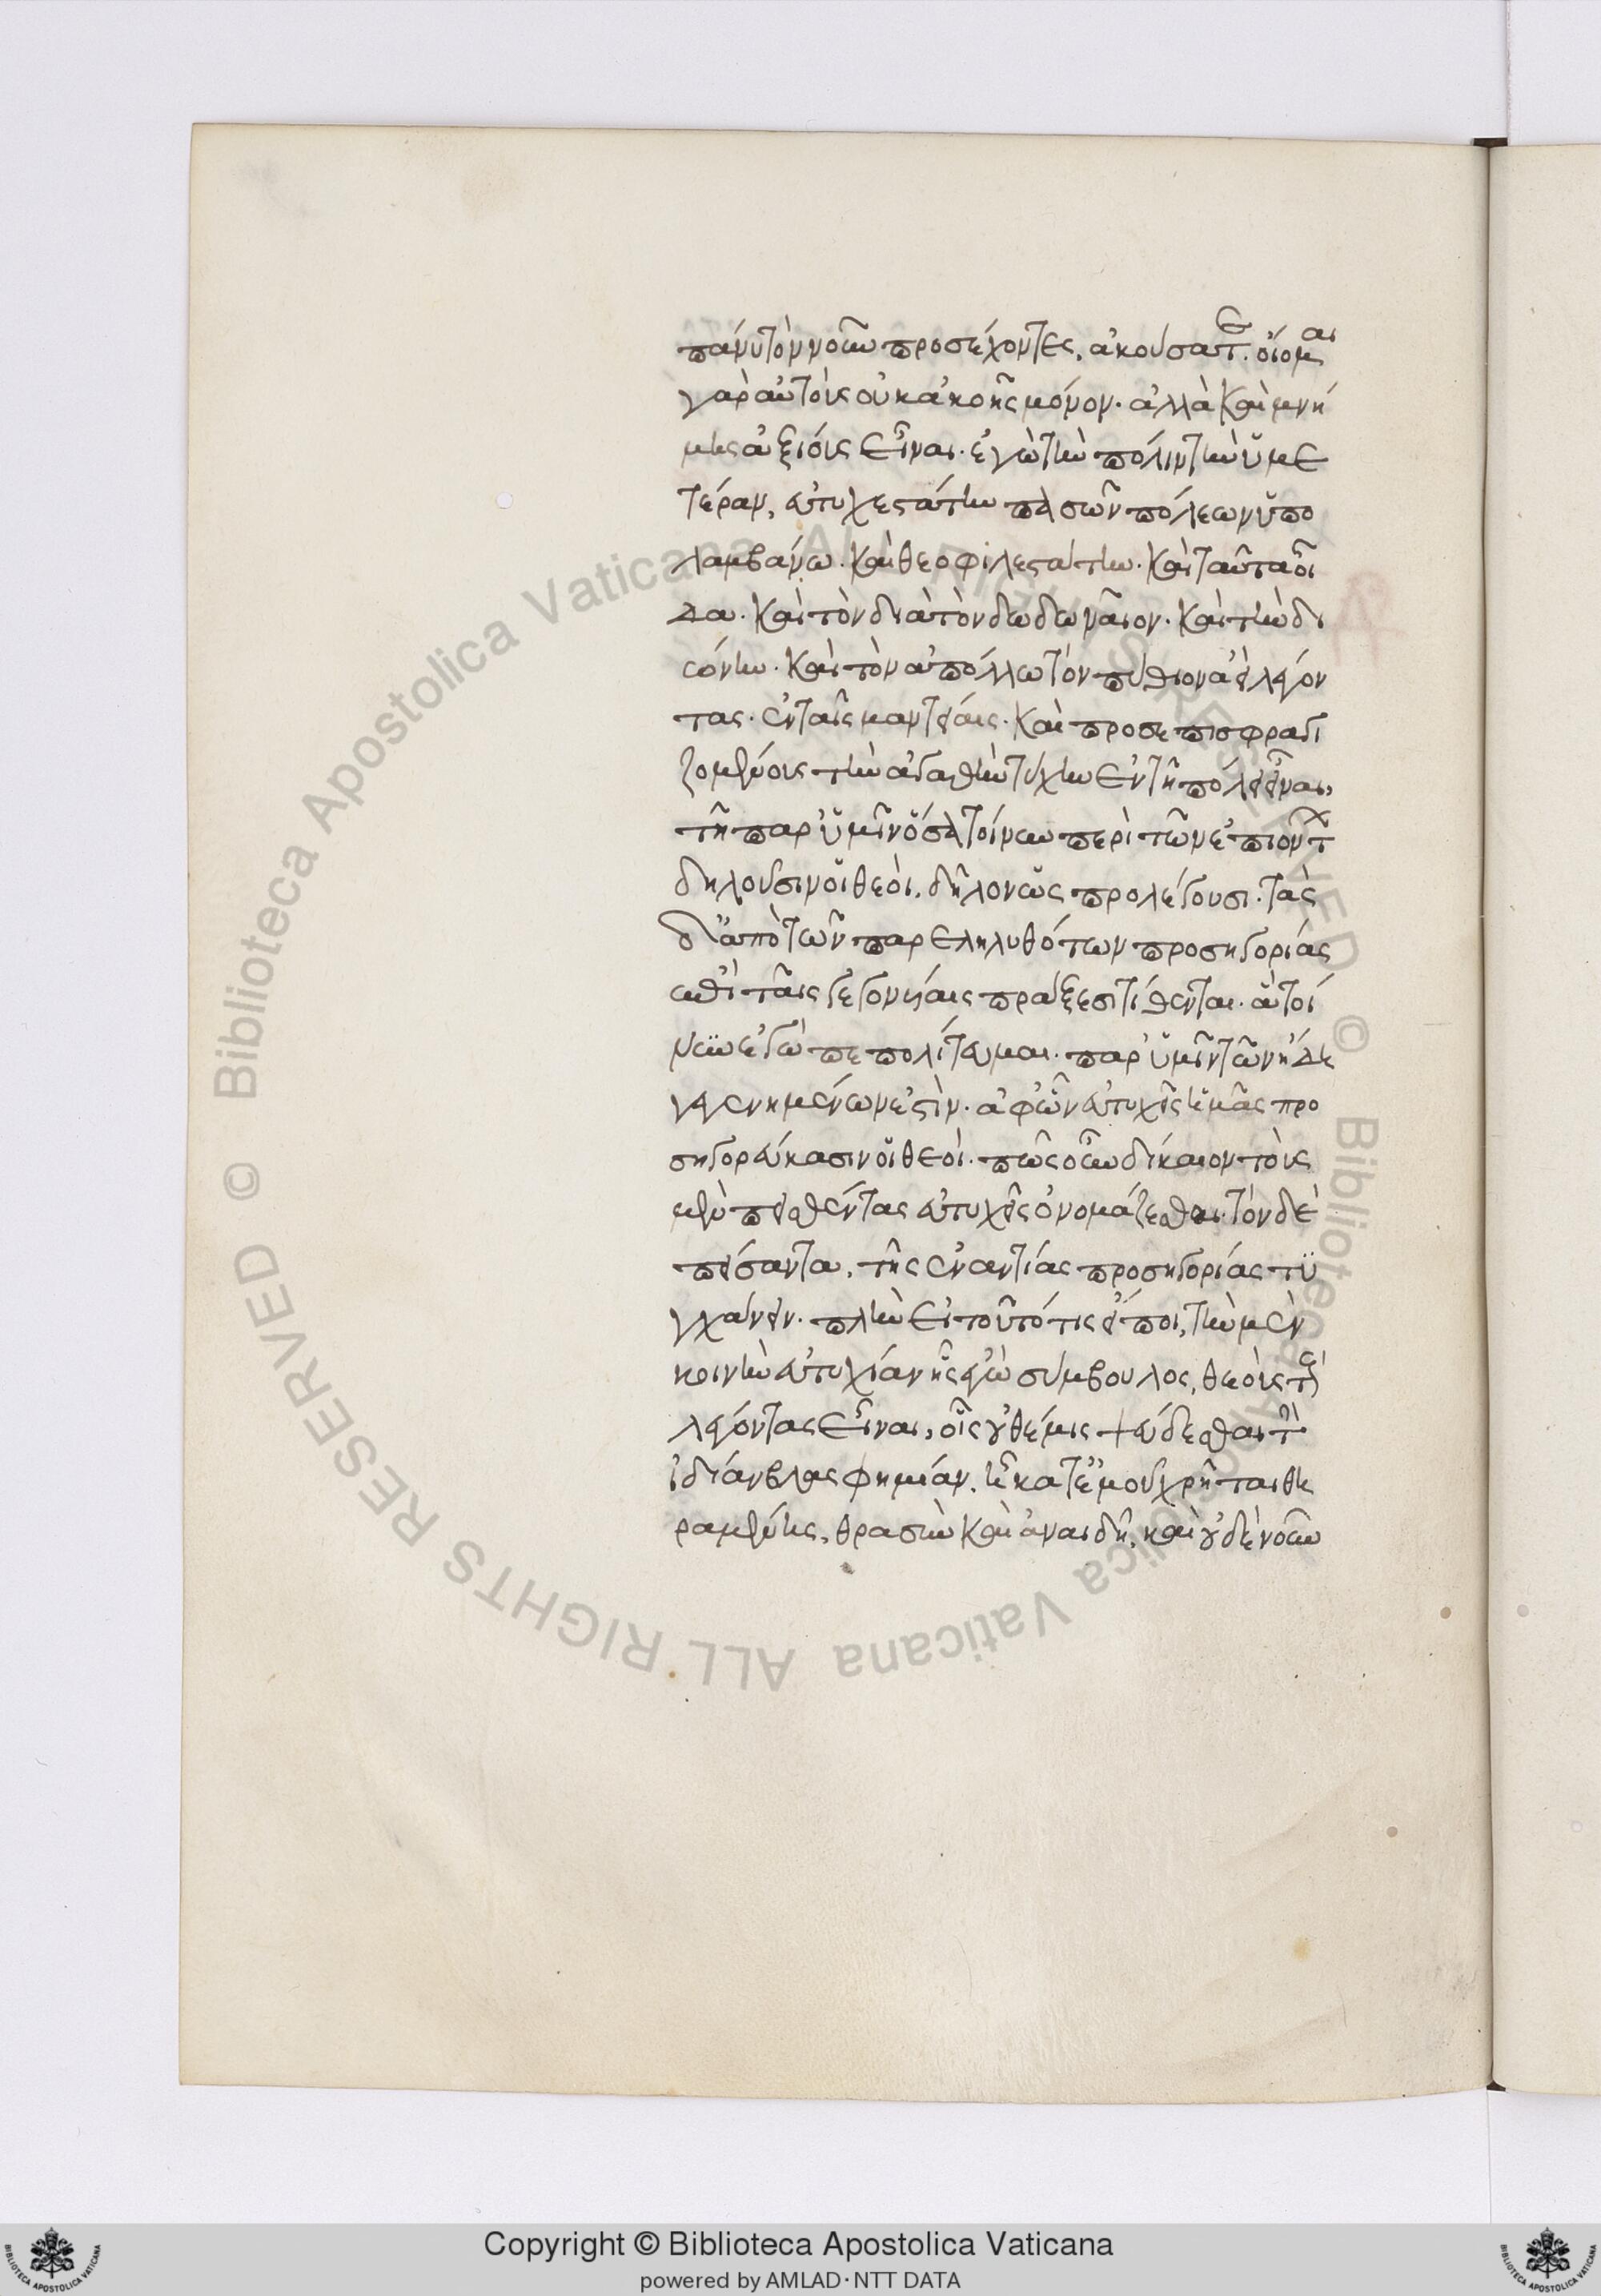 πάνυ τὸν νοῦν προσέχοντες, ἀκούσατε. οἴομαι
γὰρ αὐτοὺς οὐκ ἀκοῆς μόνον. ἀλλὰ καὶ μνή
μης ἀξίους εἶναι. ἐγὼ τὴν πόλιν τὴν ὑμε
τέραν, εὐτυχεστάτην πασῶν πόλεων ὑπο
λαμβάνω. καὶ θεοφιλεστάτην. καὶ ταῦτα οἶ
δα. καὶ τὸν δία τὸν δωδωναῖον. καὶ τὴν δι
ώνην. καὶ τὸν ἀπόλλω τὸν πύθιον ἀεὶ λέγον
τας. ἐν ταῖς μαντείαις. καὶ προσεπισφραγι
ζομένους τὴν ἀγαθὴν τύχην ἐν τῇ πόλει εἶναι,
τῇ παρ ὑμῖν ὅσα τοίνυν περὶ τῶν ἐπιόντων
δηλοῦσιν οἱ θεοὶ. δῆλον ὡς προλέγουσι. τὰς
δ ἀπὸ τῶν παρεληλυθότων προσηγορίας
ἐπὶ ταῖς γεγονυίαις πράξεσι τίθενται. ἃ τοί
νυν ἐγὼ πεπολίτευμαι. παρ ὑμῖν τῶν ἤδη
γεγενημένων ἐστὶν. ἀφ ὧν εὐτυχεῖς ὑμᾶς προ
σηγορεύκασιν οἱ θεοὶ. πῶς οὖν δίκαιον τοὺς
μὲν πεισθέντας εὐτυχεῖς ὀνομάζεσθαι. τὸν δὲ
πείσαντα, τῆς ἐναντίας προσηγορίας τυ
γχάνειν. πλὴν εἰ τοῦτό τις εἴποι, τὴν μὲν
κοινὴν εὐτυχίαν ἧς ἐγὼ σύμβουλος, θεοὺς τοὺς
λέγοντας εἶναι, οἷς οὐ θέμις ψεύδεσθαι τὴν
ἰδίαν βλασφημίαν. ᾗ κατ ἐμοῦ χρῆται θη
ραμένης, θρασὺν καὶ ἀναιδῆ, καὶ οὐδὲ νοῦν
Copyright © Biblioteca Apostolica Vaticana
powered by AMLAD·NTT DATA